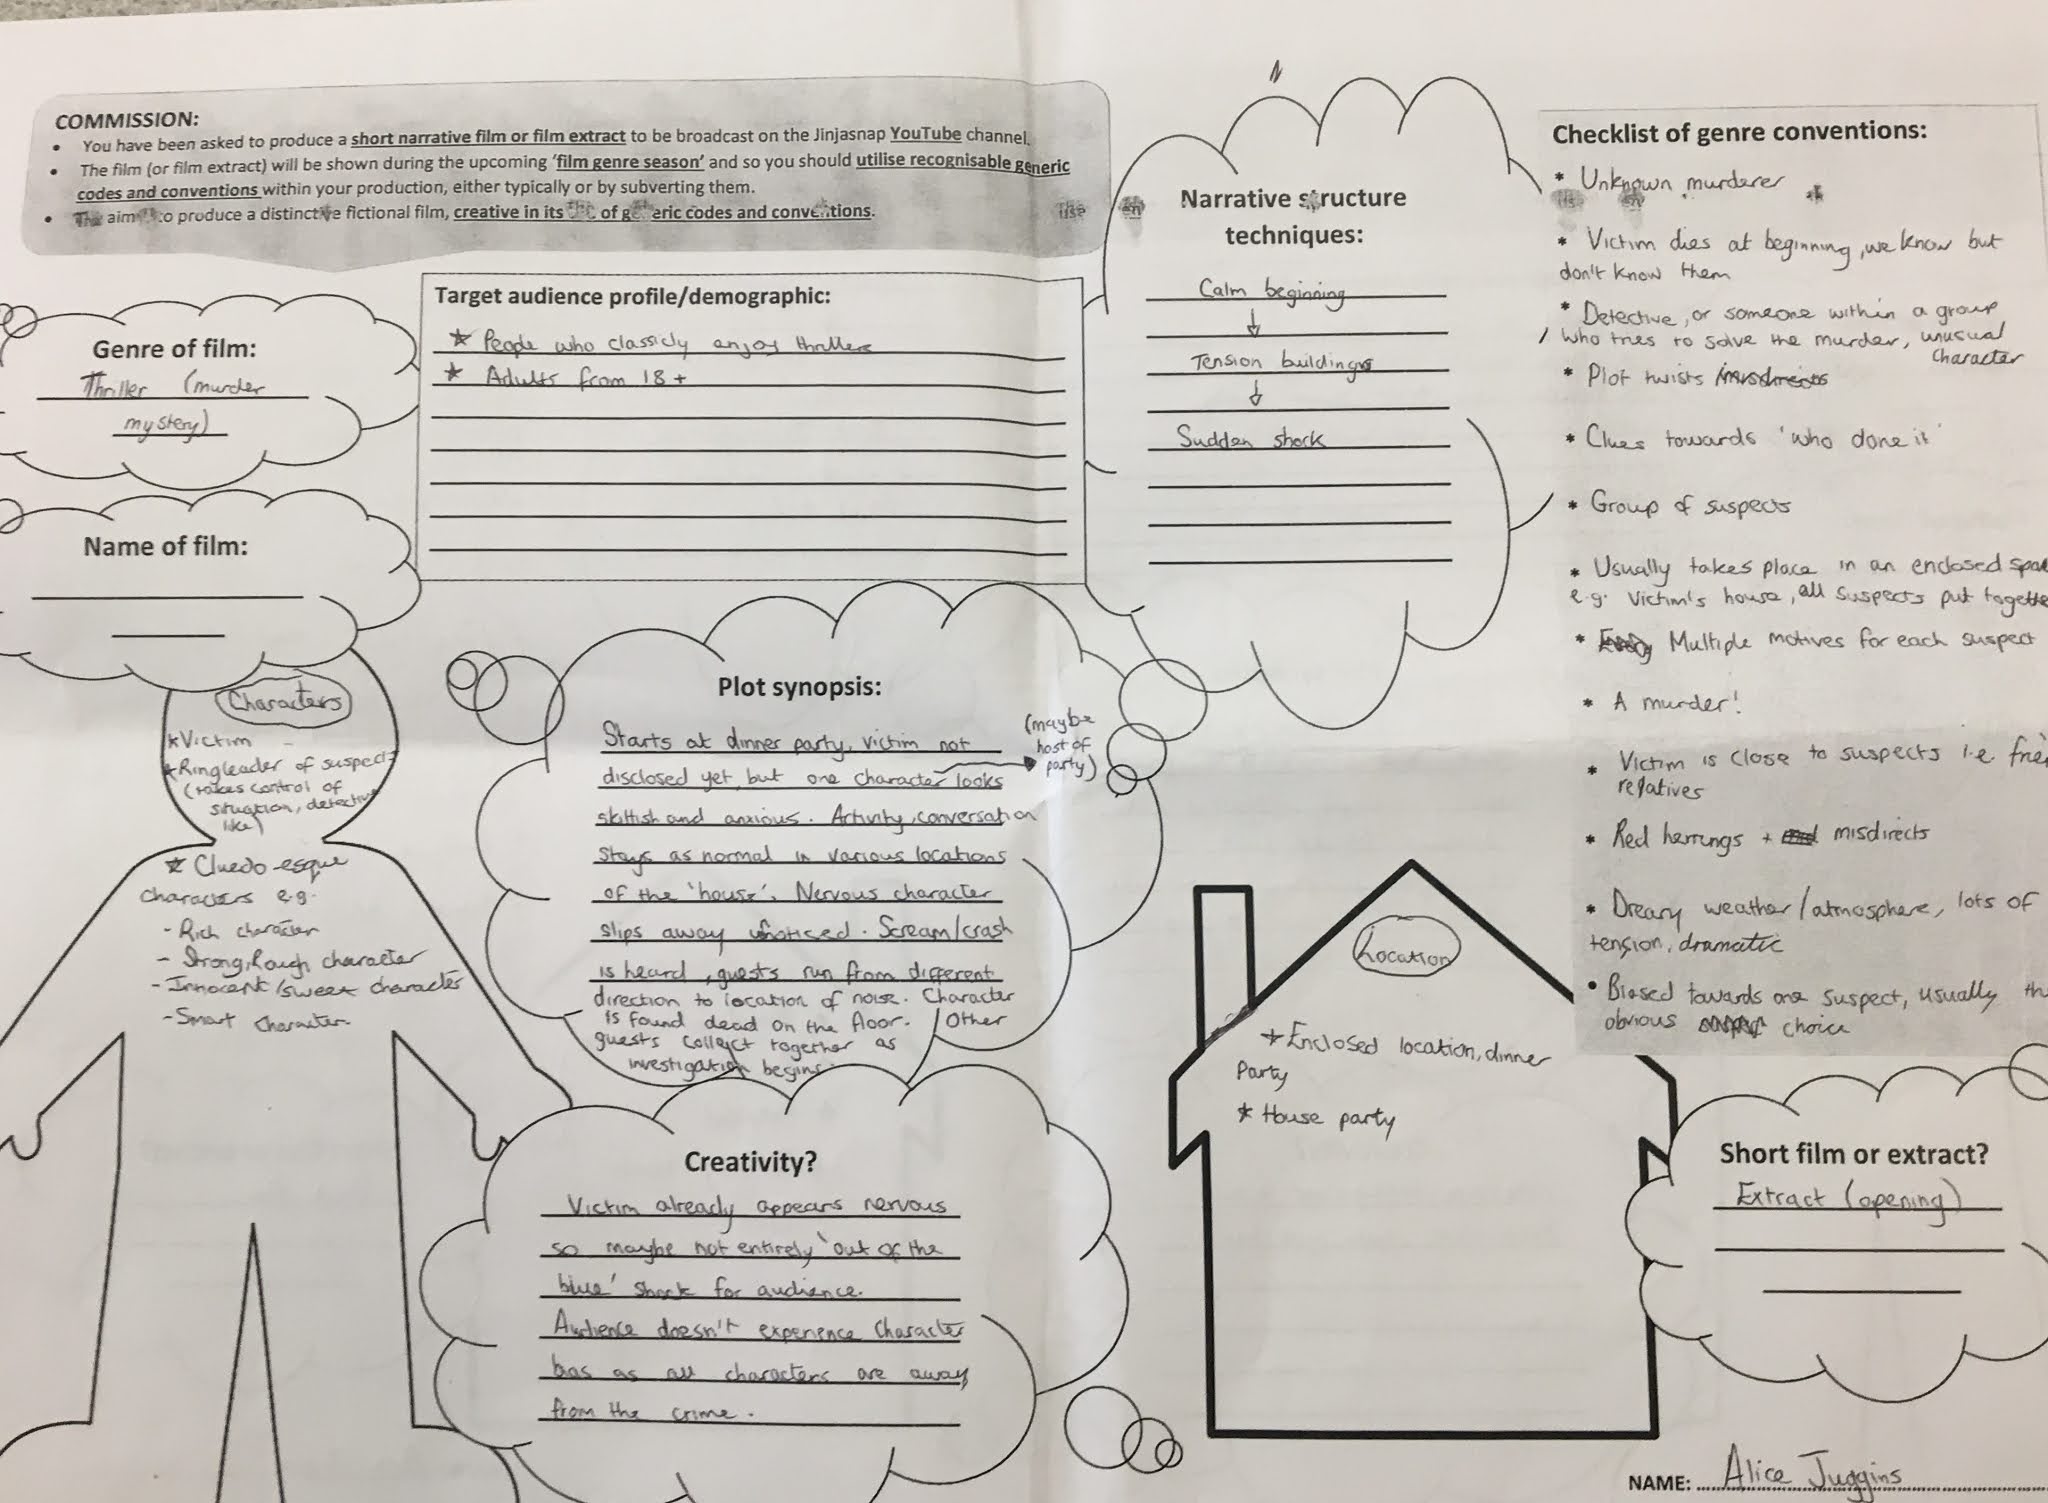 COMMISSION:
• You have been asked to produce a short narrative film or film extract to be broadcast on the Jinjasnap YouTube channel.
• The film (or film extract) will be shown during the upcoming 'film genre season' and so you should utilise recognisable generic
codes and conventions within your production, either typically or by subverting them.
• The aim to produce a distinctive fictional film, creative in its of generic codes and conventions.
Genre of film:
Thriller (murder
mystery)
Name of film:
Target audience profile/demographic:
★ People who classicly enjoy thrillers
★ Adults from 18+
Narrative structure
techniques:
Calm beginning
↓
Tension building
↓
Sudden shock
Checklist of genre conventions:
* Unknown murderer
* Victim dies at beginning, we know but
don't know them
* Detective, or someone within a group
who tries to solve the murder, unusual
character
* Plot twists
* Clues towards 'who done it'
* Group of suspects
* Usually takes place in an enclosed spa
e.g. victim's house, all suspects put togethe
* Multiple motives for each suspect
* A murder!
* Victim is close to suspects i.e. frie
relatives
* Red herrings + misdirects
* Dreary weather/atmosphere, lots of
tension, dramatic
• Biased towards one suspect, usually th
obvious choice
Characters
★ Victim
★ Ringleader of suspects
(takes control of
situation, detective
like)
★ Cluedo-esque
characters e.g.
- Rich character
- Strong, Rough character
- Innocent/sweet character
- Smart character
Plot synopsis:
Starts at dinner party, victim not
disclosed yet, but one character looks
(maybe
host of
party)
skittish and anxious. Activity, conversation
stays as normal in various locations
of the 'house'. Nervous character
slips away unnoticed. Scream/crash
is heard, guests run from different
direction to location of noise. Character
is found dead on the floor. Other
guests collect together as
investigation begins.
Creativity?
Victim already appears nervous
so maybe not entirely 'out of the
blue' shock for audience.
Audience doesn't experience character
bias as all characters are away
from the crime.
Location
★ Enclosed location, dinner
Party
★ House party
Short film or extract?
Extract (opening)
NAME: Alice Juggins